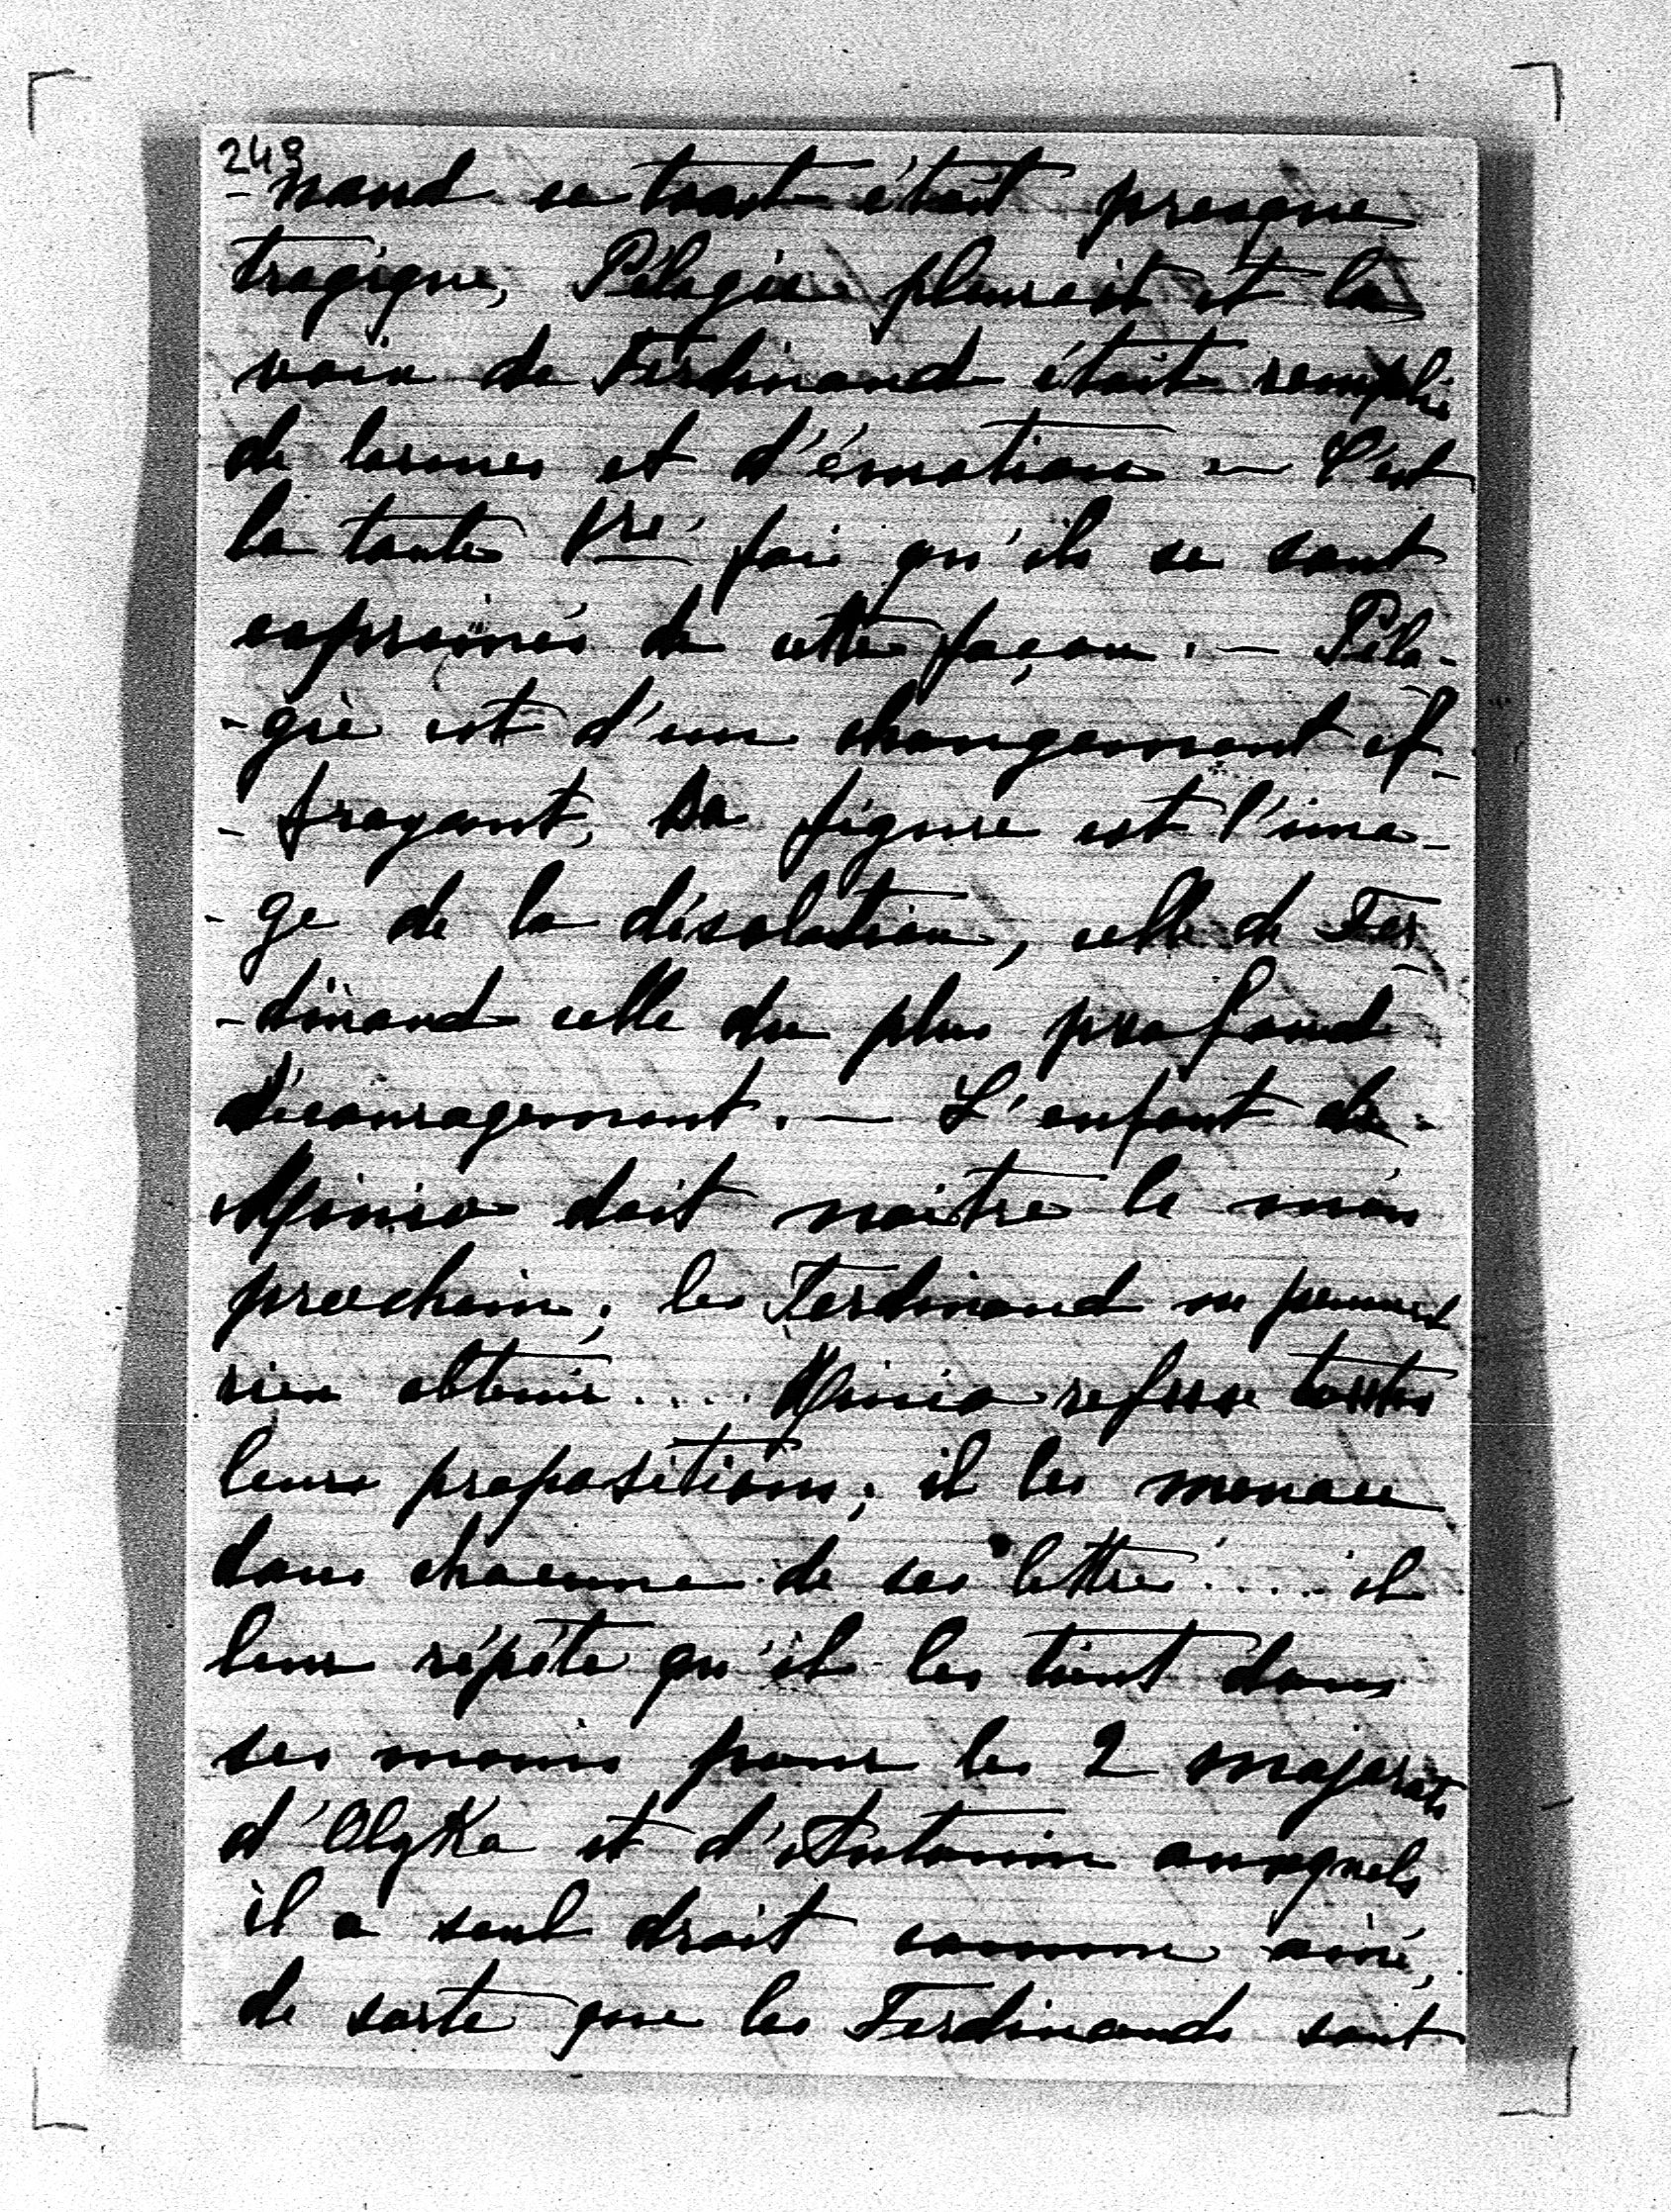 249
-nand ce trait était presque
tragique, Pélagie pleurait et la
voix de Ferdinand était remplie
de larmes et d'émotion — C'est
la toute 1re fois qu'ils se sont
exprimés de cette façon. — Péla-
-gie est d'un changement ef-
-frayant, sa figure est l'ima-
-ge de la désolation, celle de Fer
-dinand celle du plus profond
découragement. — L'enfant de
Minio doit naître le mois
prochain; les Ferdinand ne peuvent
rien obtenir .... Minio refuse toutes
leurs propositions; il les menace
dans chacune de ses lettres .... il
leur répète qu'il les tient dans
ses mains pour les 2 majorats
d'Olyka et d'Antonin auxquels
il a seul droit comme aîné,
de sorte que les Ferdinands sont